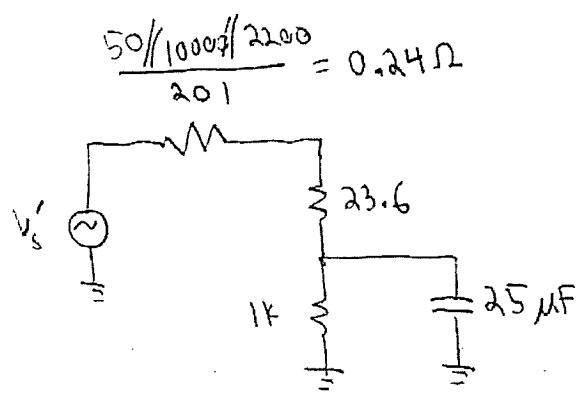 50//10000//2200
201
= 0.24Ω
Vs'
23.6
1k
25 μF